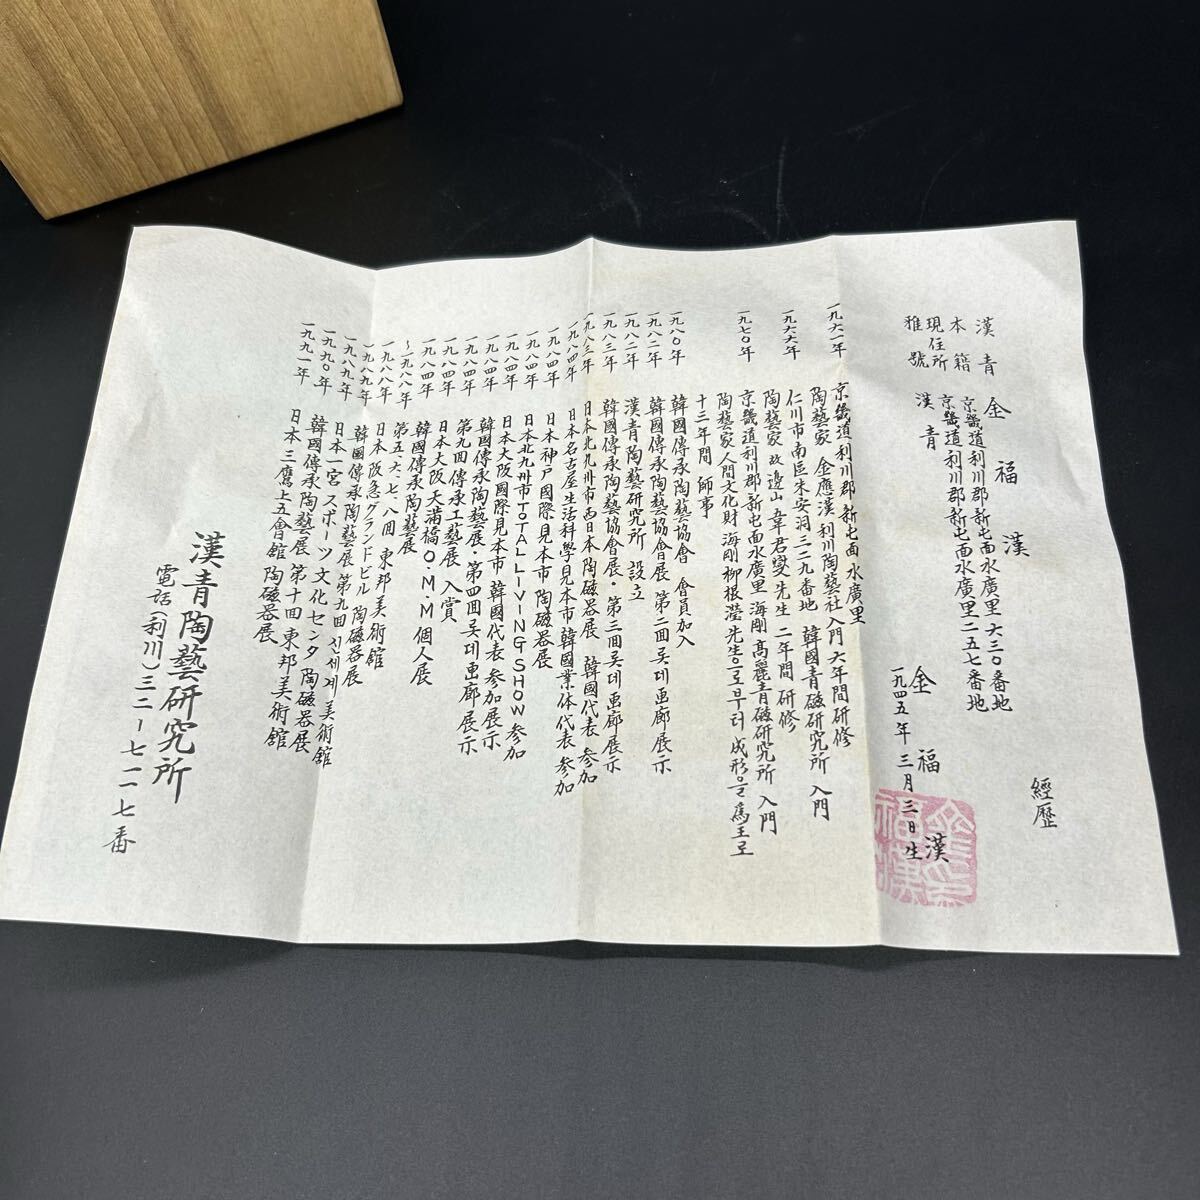 經歷
漢青 金福漢
本籍 京畿道利川郡新屯面水廣里六三〇番地
現住所 京畿道利川郡新屯面水廣里二五七番地
雅號 漢青
金福漢
一九四五年三月三日生
一九六一年 京畿道利川郡新屯面水廣里
陶藝家 金應漢 利川陶藝社入門 六年間研修
一九六六年 仁川市南區朱安洞三二九番地 韓國青磁研究所 入門
陶藝家 故邊山 李君燮先生 二年間 研修
一九七〇年 京畿道利川郡新屯面水廣里 海剛高麗青磁研究所 入門
陶藝家人間文化財 海剛 柳根瀅先生으로부터 成形을 爲主로
十三年間 師事
一九八〇年 韓國傳承陶藝協會 會員加入
一九八二年 韓國傳承陶藝協會展 第二回 롯데画廊展示
一九八二年 漢青陶藝研究所 設立
一九八三年 韓國傳承陶藝協會展・第三回롯데画廊展示
一九八三年 日本北九州市西日本陶磁器展 韓國代表 参加
一九八四年 日本名古屋生活科學見本市韓國業体代表 参加
一九八四年 日本神戸國際見本市陶磁器展
一九八四年 日本北九州市TOTAL LIVING SHOW 参加
一九八四年 日本大阪國際見本市 韓國代表 参加展示
一九八四年 韓國傳承陶藝展・第四回롯데画廊展示
一九八四年 第九回傳承工藝展 入賞
一九八四年 日本大阪天満橋O.M.M個人展
一九八四年 韓國傳承陶藝展
~一九八八年 第五、六、七、八回 東邦美術館
一九八八年 日本阪急グランドビル 陶磁器展
一九八九年 韓國傳承陶藝展 第九回 신세계美術館
一九八九年 日本一宮スポーツ文化センタ陶磁器展
一九九〇年 韓國傳承陶藝展 第十回 東邦美術館
一九九一年 日本三鷹上五會館 陶磁器展
漢青陶藝研究所
電話(利川)三二ー七二一七番